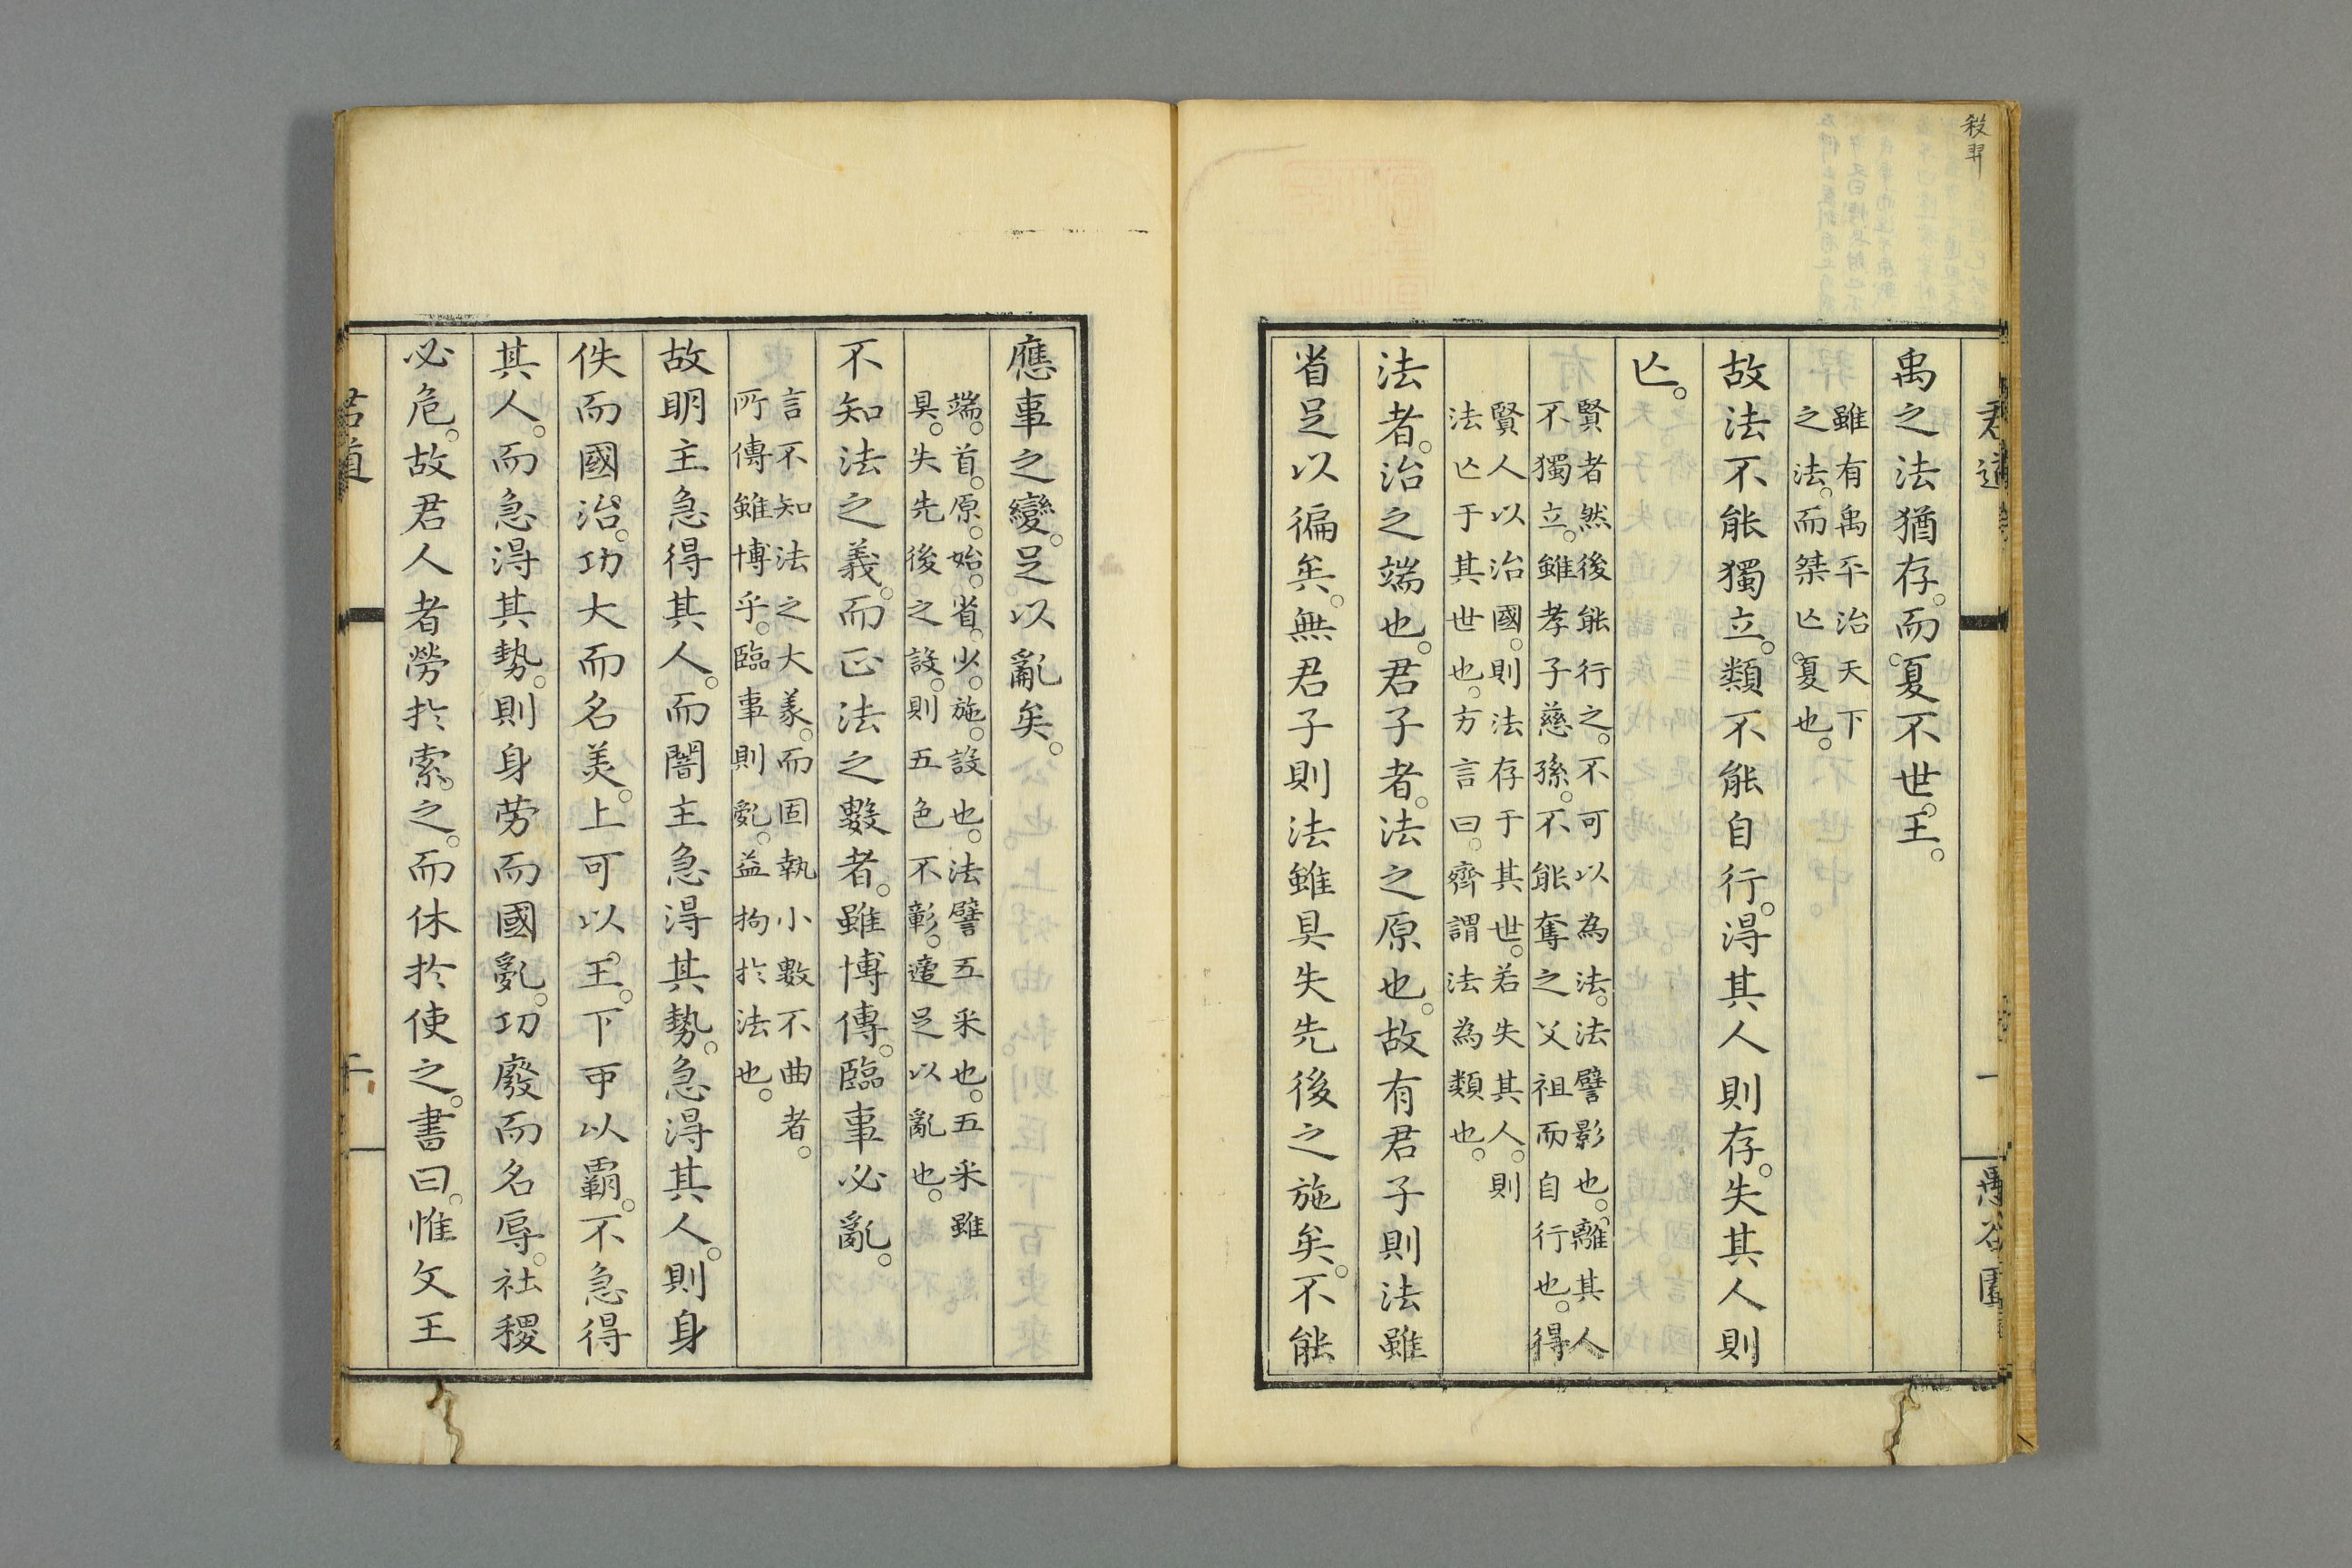 殺羿
君道
一
愚谷園
禹之法猶存。而夏不世王。
雖有禹平治天下
之法。而桀亾。夏也。
故法不能獨立。類不能自行。得其人則存。失其人則
亾。
賢者然後能行之。不可以為法。法譬影也。離其人
不獨立。雖孝子慈孫。不能奪之父祖而自行也。得
賢人以治國。則法存于其世。若失其人。則
法亾于其世也。方言曰。齊謂法為類也。
法者。治之端也。君子者。法之原也。故有君子則法雖
省足以徧矣。無君子則法雖具失先後之施矣。不能
應事之變。足以亂矣。
端。首。原。始。省。少。施。設也。法譬五采也。五采雖
具。失先後之設。則五色不彰。適足以亂也。
不知法之義。而正法之數者。雖博傳。臨事必亂。
言不知法之大義。而固執小數不曲者。
所傳雖博乎。臨事則亂。益拘於法也。
故明主急得其人。而闇主急得其勢。急得其人。則身
佚而國治。功大而名美。上可以。王。下可以霸。不急得
其人。而急得其勢。則身劳而國亂。功廢而名辱。社稷
必危。故君人者勞於索。之。而休於使之。書曰。惟文王
君道